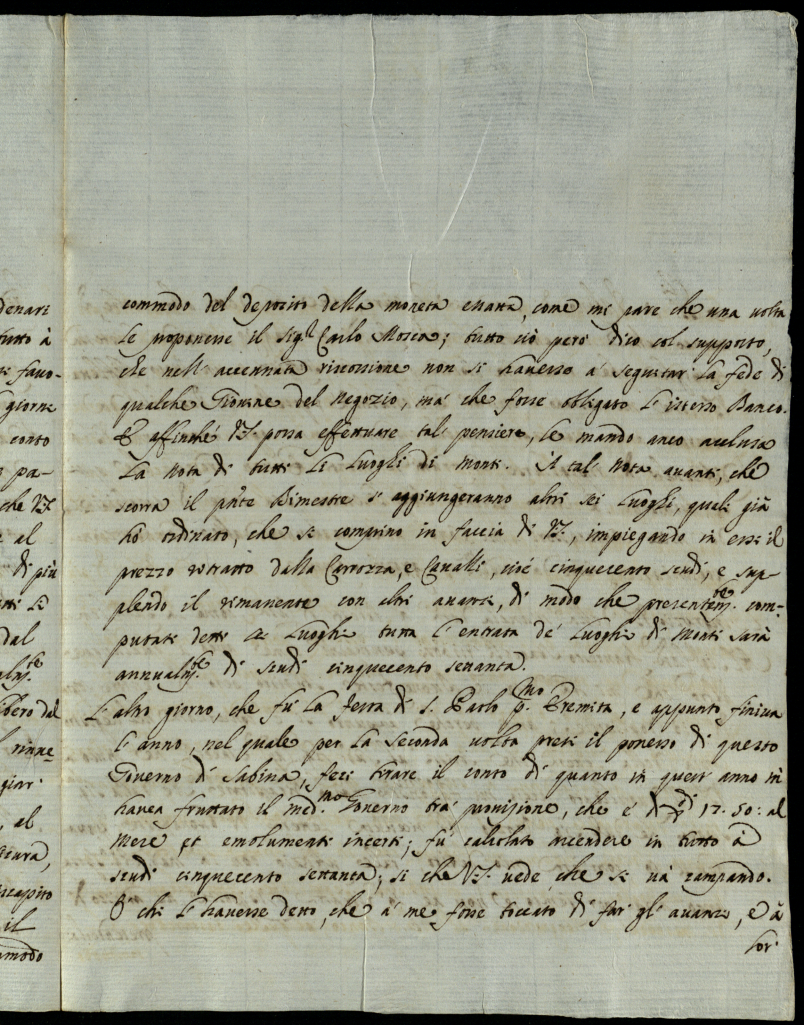 commodo del deposito della moneta esatta, come mi pare che una volta
le proponesse il Sig.r Carlo Mosca; tutto ciò però dico col supposto,
che nell'accennata riscossione non si havesse a seguitar la fede di
qualche Giovane del negozio, mà che fosse obligato l'istesso Banco.
E affinché V.S. possa effettuare tal pensiere, le mando anco acclusa
la nota di tutti li Luoghi di Monti. A tal nota avanti, che
scorra il pñte Bimestre s'aggiungeranno altri sei Luoghi, quali già
hò ordinato, che si comprino in faccia di V.S., impiegando in essi il
prezzo ritratto dalla Carrozza, e Cavalli, cioè cinquecento scudi, e sup-
plendo il rimanente con altri avanzi, di modo che presentem.te com-
putati detti Luoghi tutta l'entrata de' Luoghi di Monti sarà
annualm.te di scudi cinquecento settanta.
L'altro giorno, che fù la festa di S. Paolo p.mo Eremita, e appunto finiva
l'anno, nel quale per la seconda volta presi il possesso di questo
Governo di Sabina, feci tirare il conto di quanto in quest'anno m'
havea fruttato il med.mo Governo trà provisione, che è di 17.50: al
mese et emolumenti incerti; fù calcolato ascendere in tutto à
scudi cinquecento settanta; si che V.S. vede che si và campando.
O chi l'havesse detto, che à me fosse toccato di far gl'avanzi, e à
lor
denari
tutto à
giorni
conto
pa-
che V.S.
al
di più
dal
libero dal
rinne-
giar
, al
il